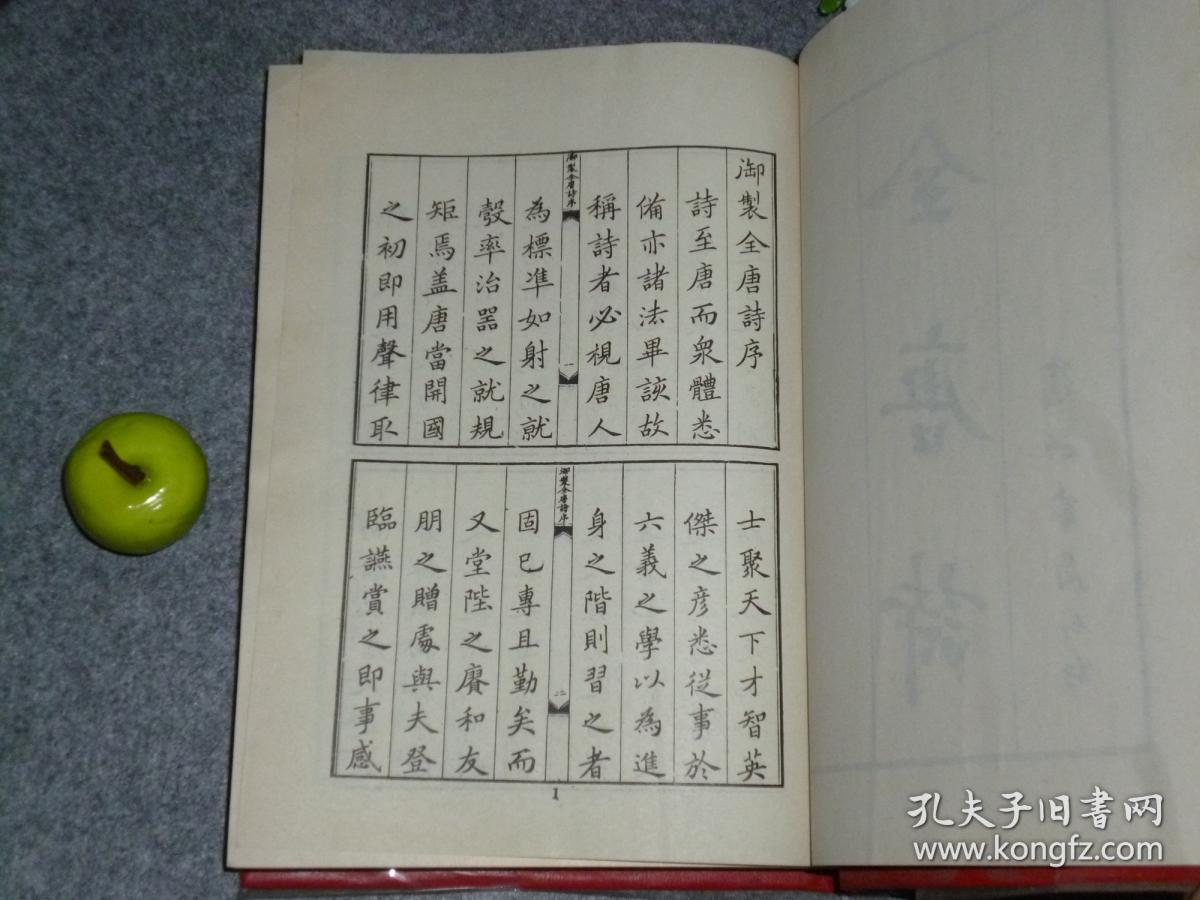 御製全唐詩序
詩至唐而衆體悉
備亦諸法畢該故
稱詩者必視唐人
御製全唐詩序
一
為標準如射之就
彀率治器之就規
矩焉盖唐當開國
之初即用聲律取
士聚天下才智英
傑之彦悉從事於
六義之學以為進
身之階則習之者
御製全唐詩序
二
固已專且勤矣而
又堂陛之賡和友
朋之贈處與夫登
臨讌賞之即事感
1
全唐詩
孔夫子旧书网
www.kongfz.com